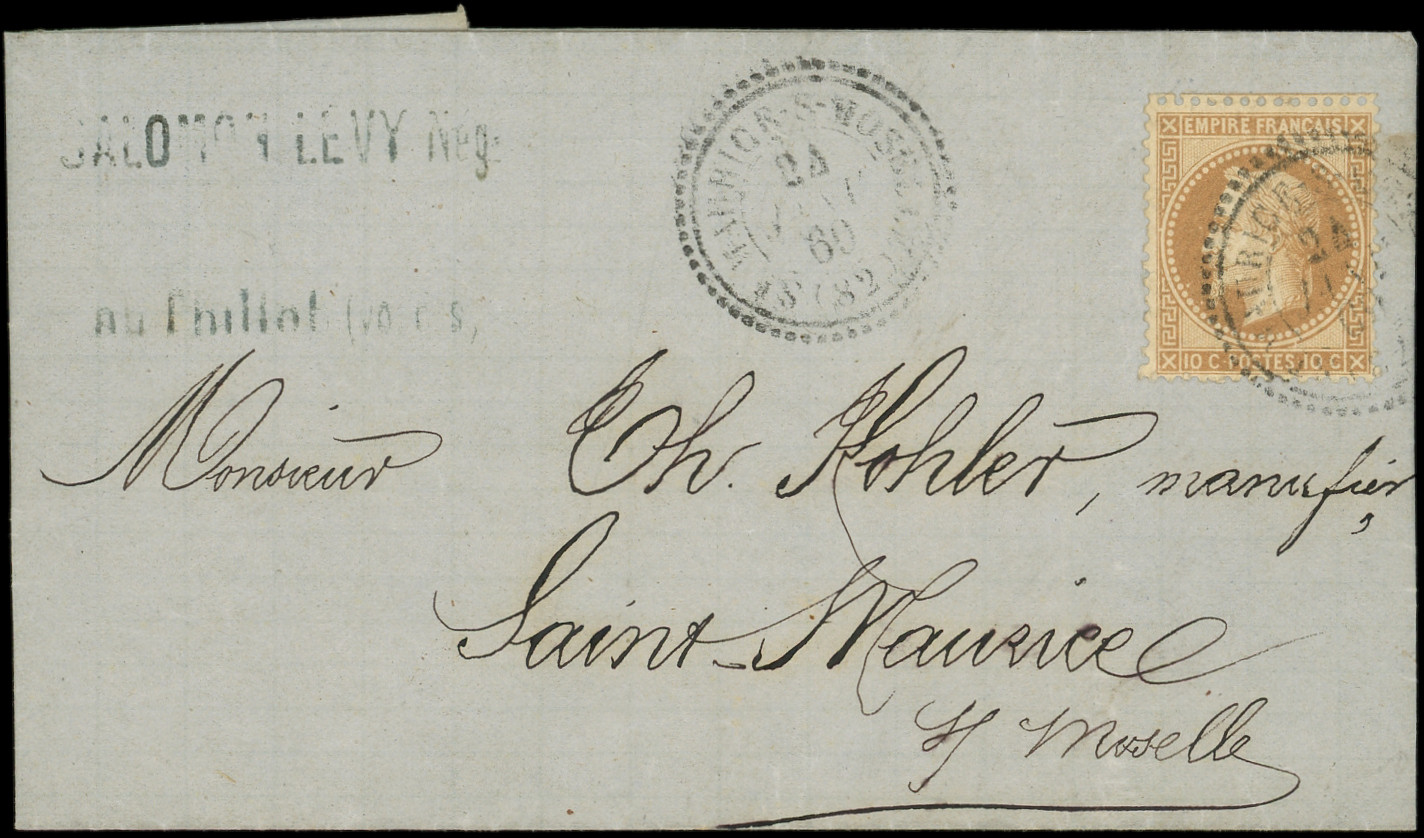 SALOMON LEVY Neg.
au Thillot (Vosges)
ST MAURICE-S-MOSELLE (82)
24
JANV
69
EMPIRE FRANÇAIS
10 C·POSTES·10 C
URICE
24
Monsieur Th. Kohler, manufier,
Saint-Maurice
s/ Moselle